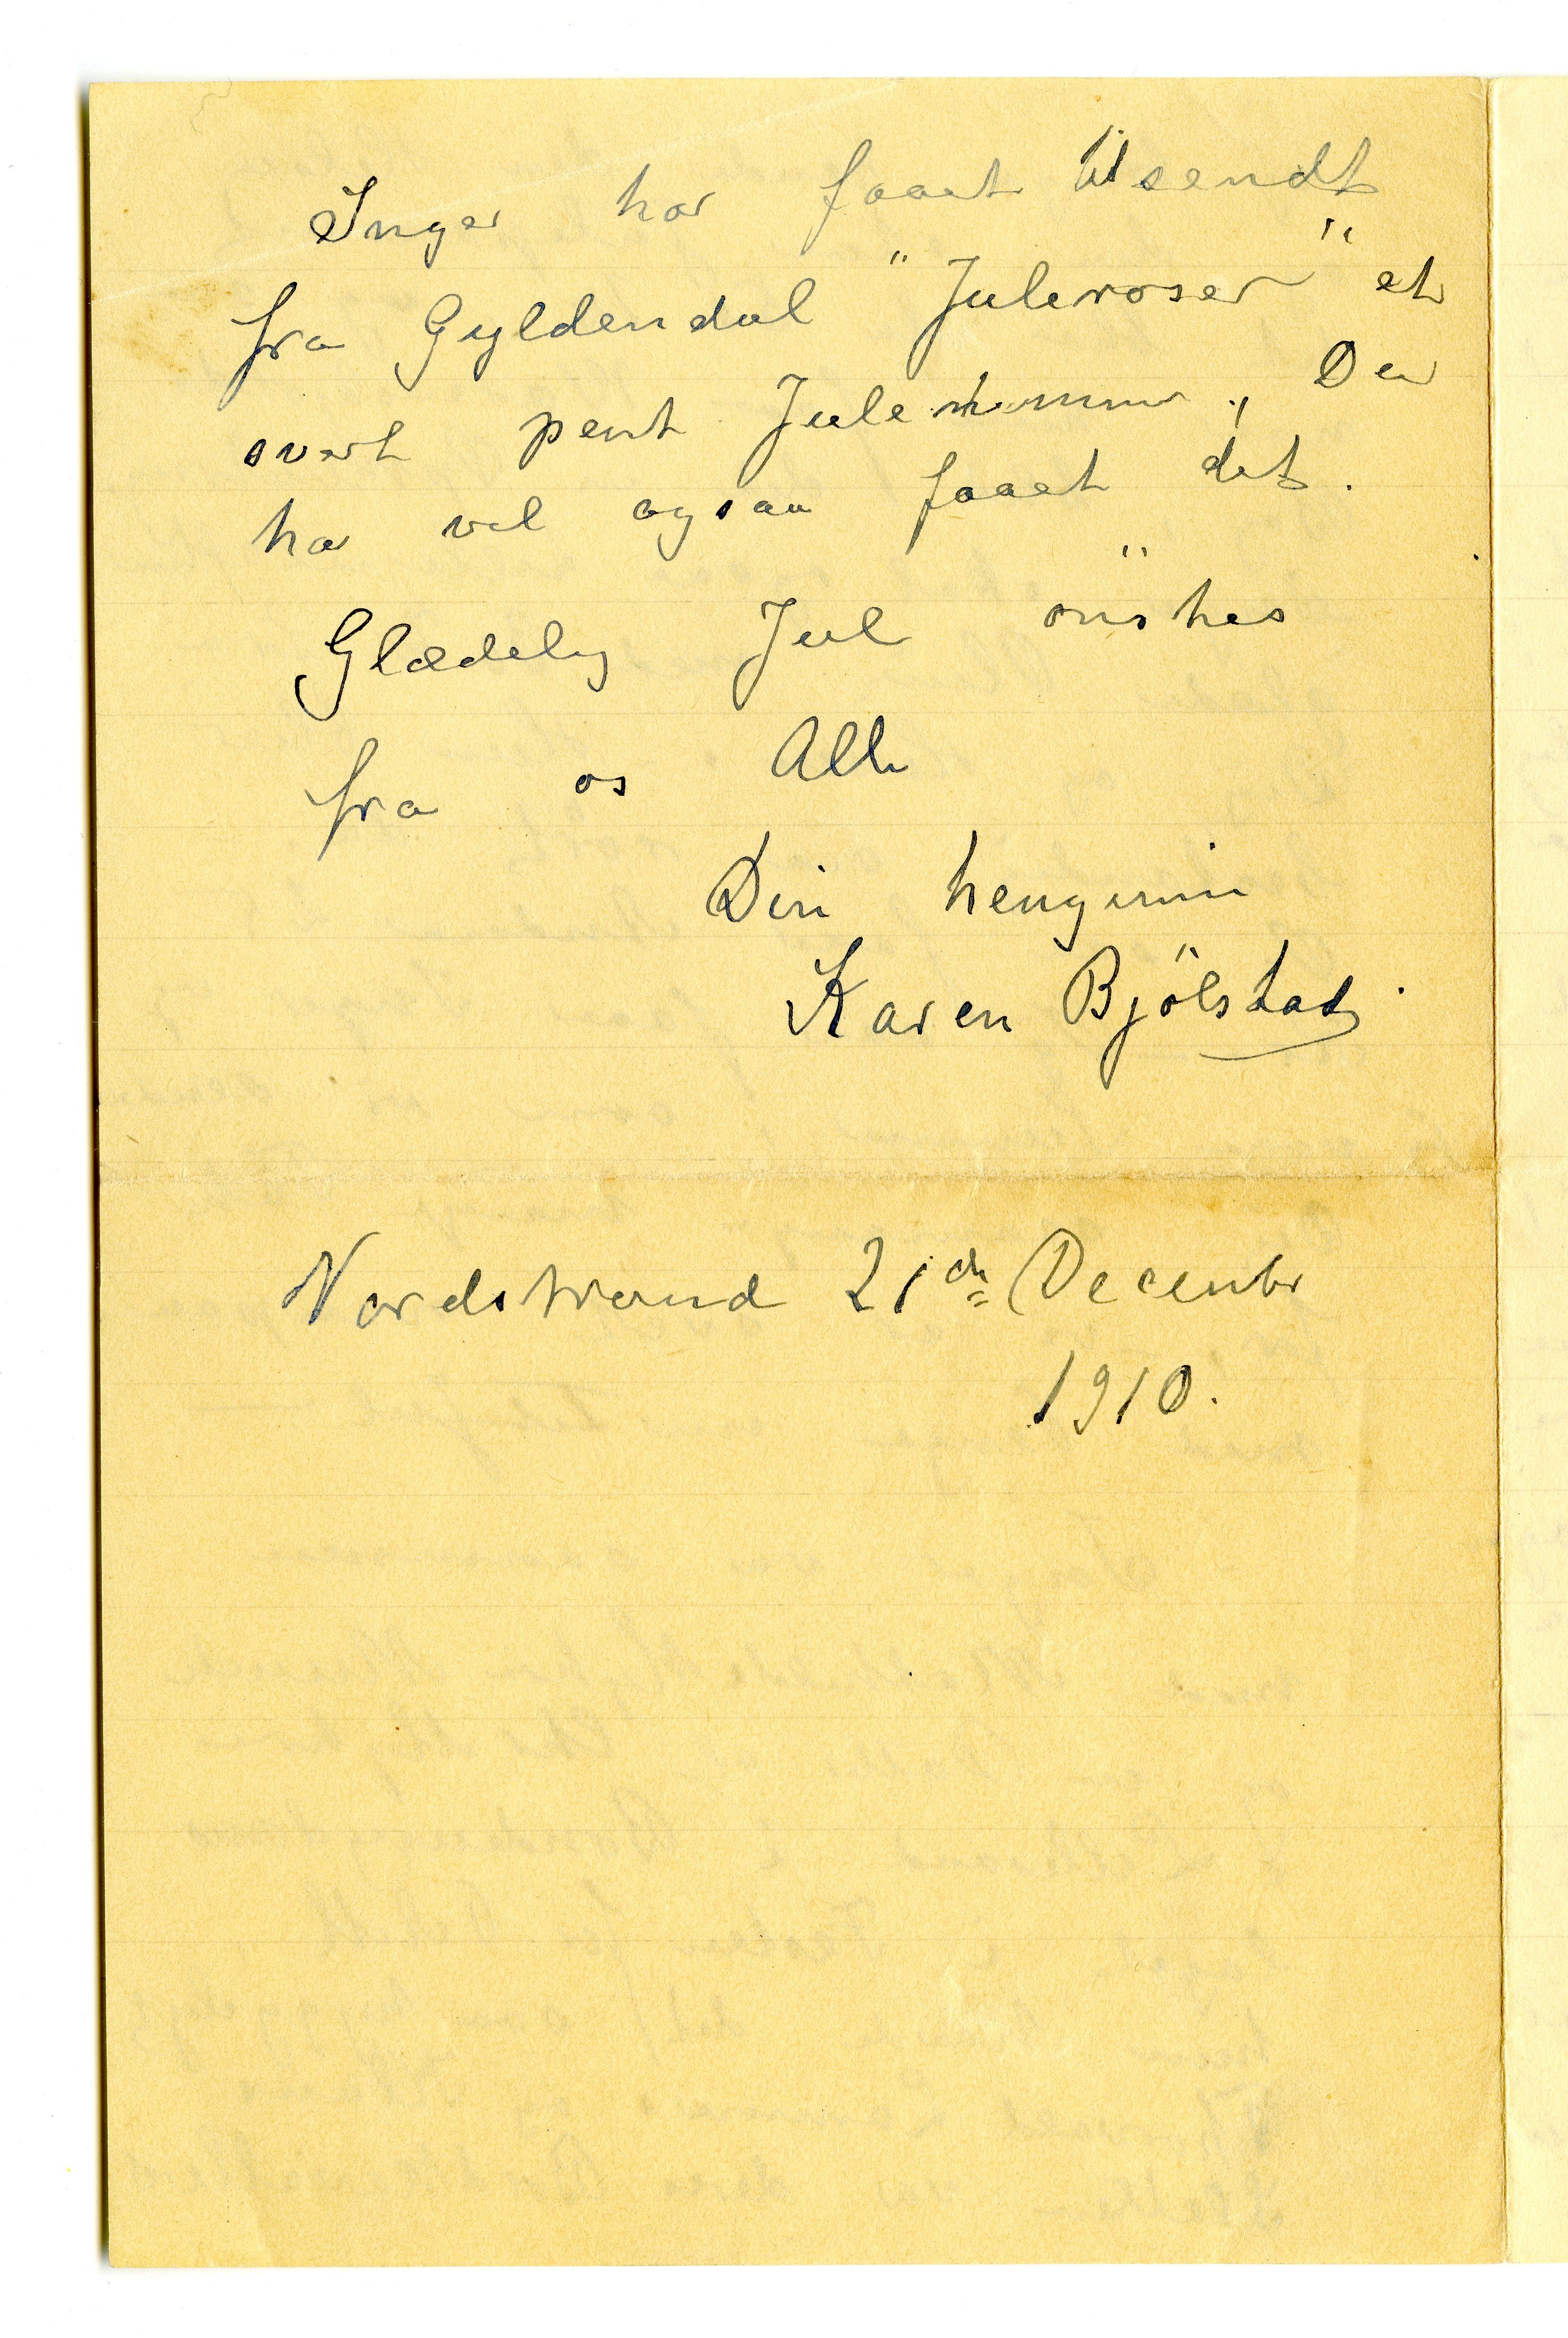 Inger har faaet tilsendt
fra Gyldendal "Juleroser" et
svert pent Julenummer, Du
har vel ogsaa faaet det.
Glædelig Jul önskes
fra os Alle
Din hengivne
Karen Bjölstad.
Nordstrand 21de Decembr
1910.